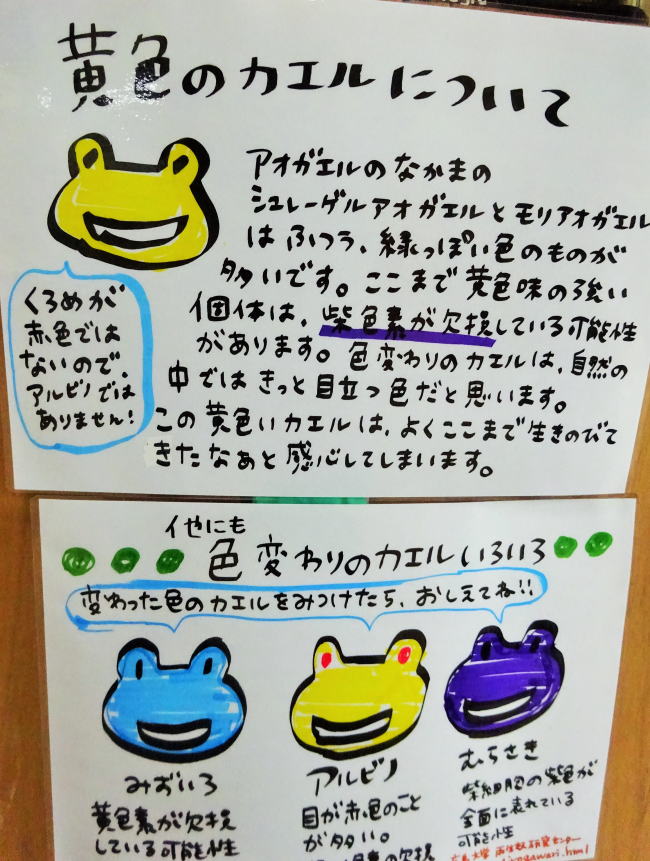 黄色のカエルについて
アオガエルのなかまの
シュレーゲルアオガエルとモリアオガエル
はふつう、緑っぽい色のものが
多いです。ここまで黄色味の強い
個体は、紫色素が欠損している可能性
があります。色変わりのカエルは、自然の
中ではきっと目立つ色だと思います。
この黄色いカエルは、よくここまで生きのびて
きたなあと感心してしまいます。
くろめが
赤色では
ないので、
アルビノでは
ありません!
他にも
色変わりのカエルいろいろ
変わった色のカエルをみつけたら、おしえてね!!
みずいろ
黄色素が欠損
している可能性
アルビノ
目が赤色のこと
が多い。
色素の欠損
むらさき
紫細胞の紫色が
全面に表れている
可能性